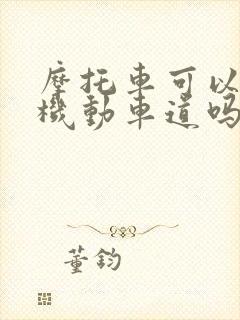 摩托車可以
機動車道吗
董鈞